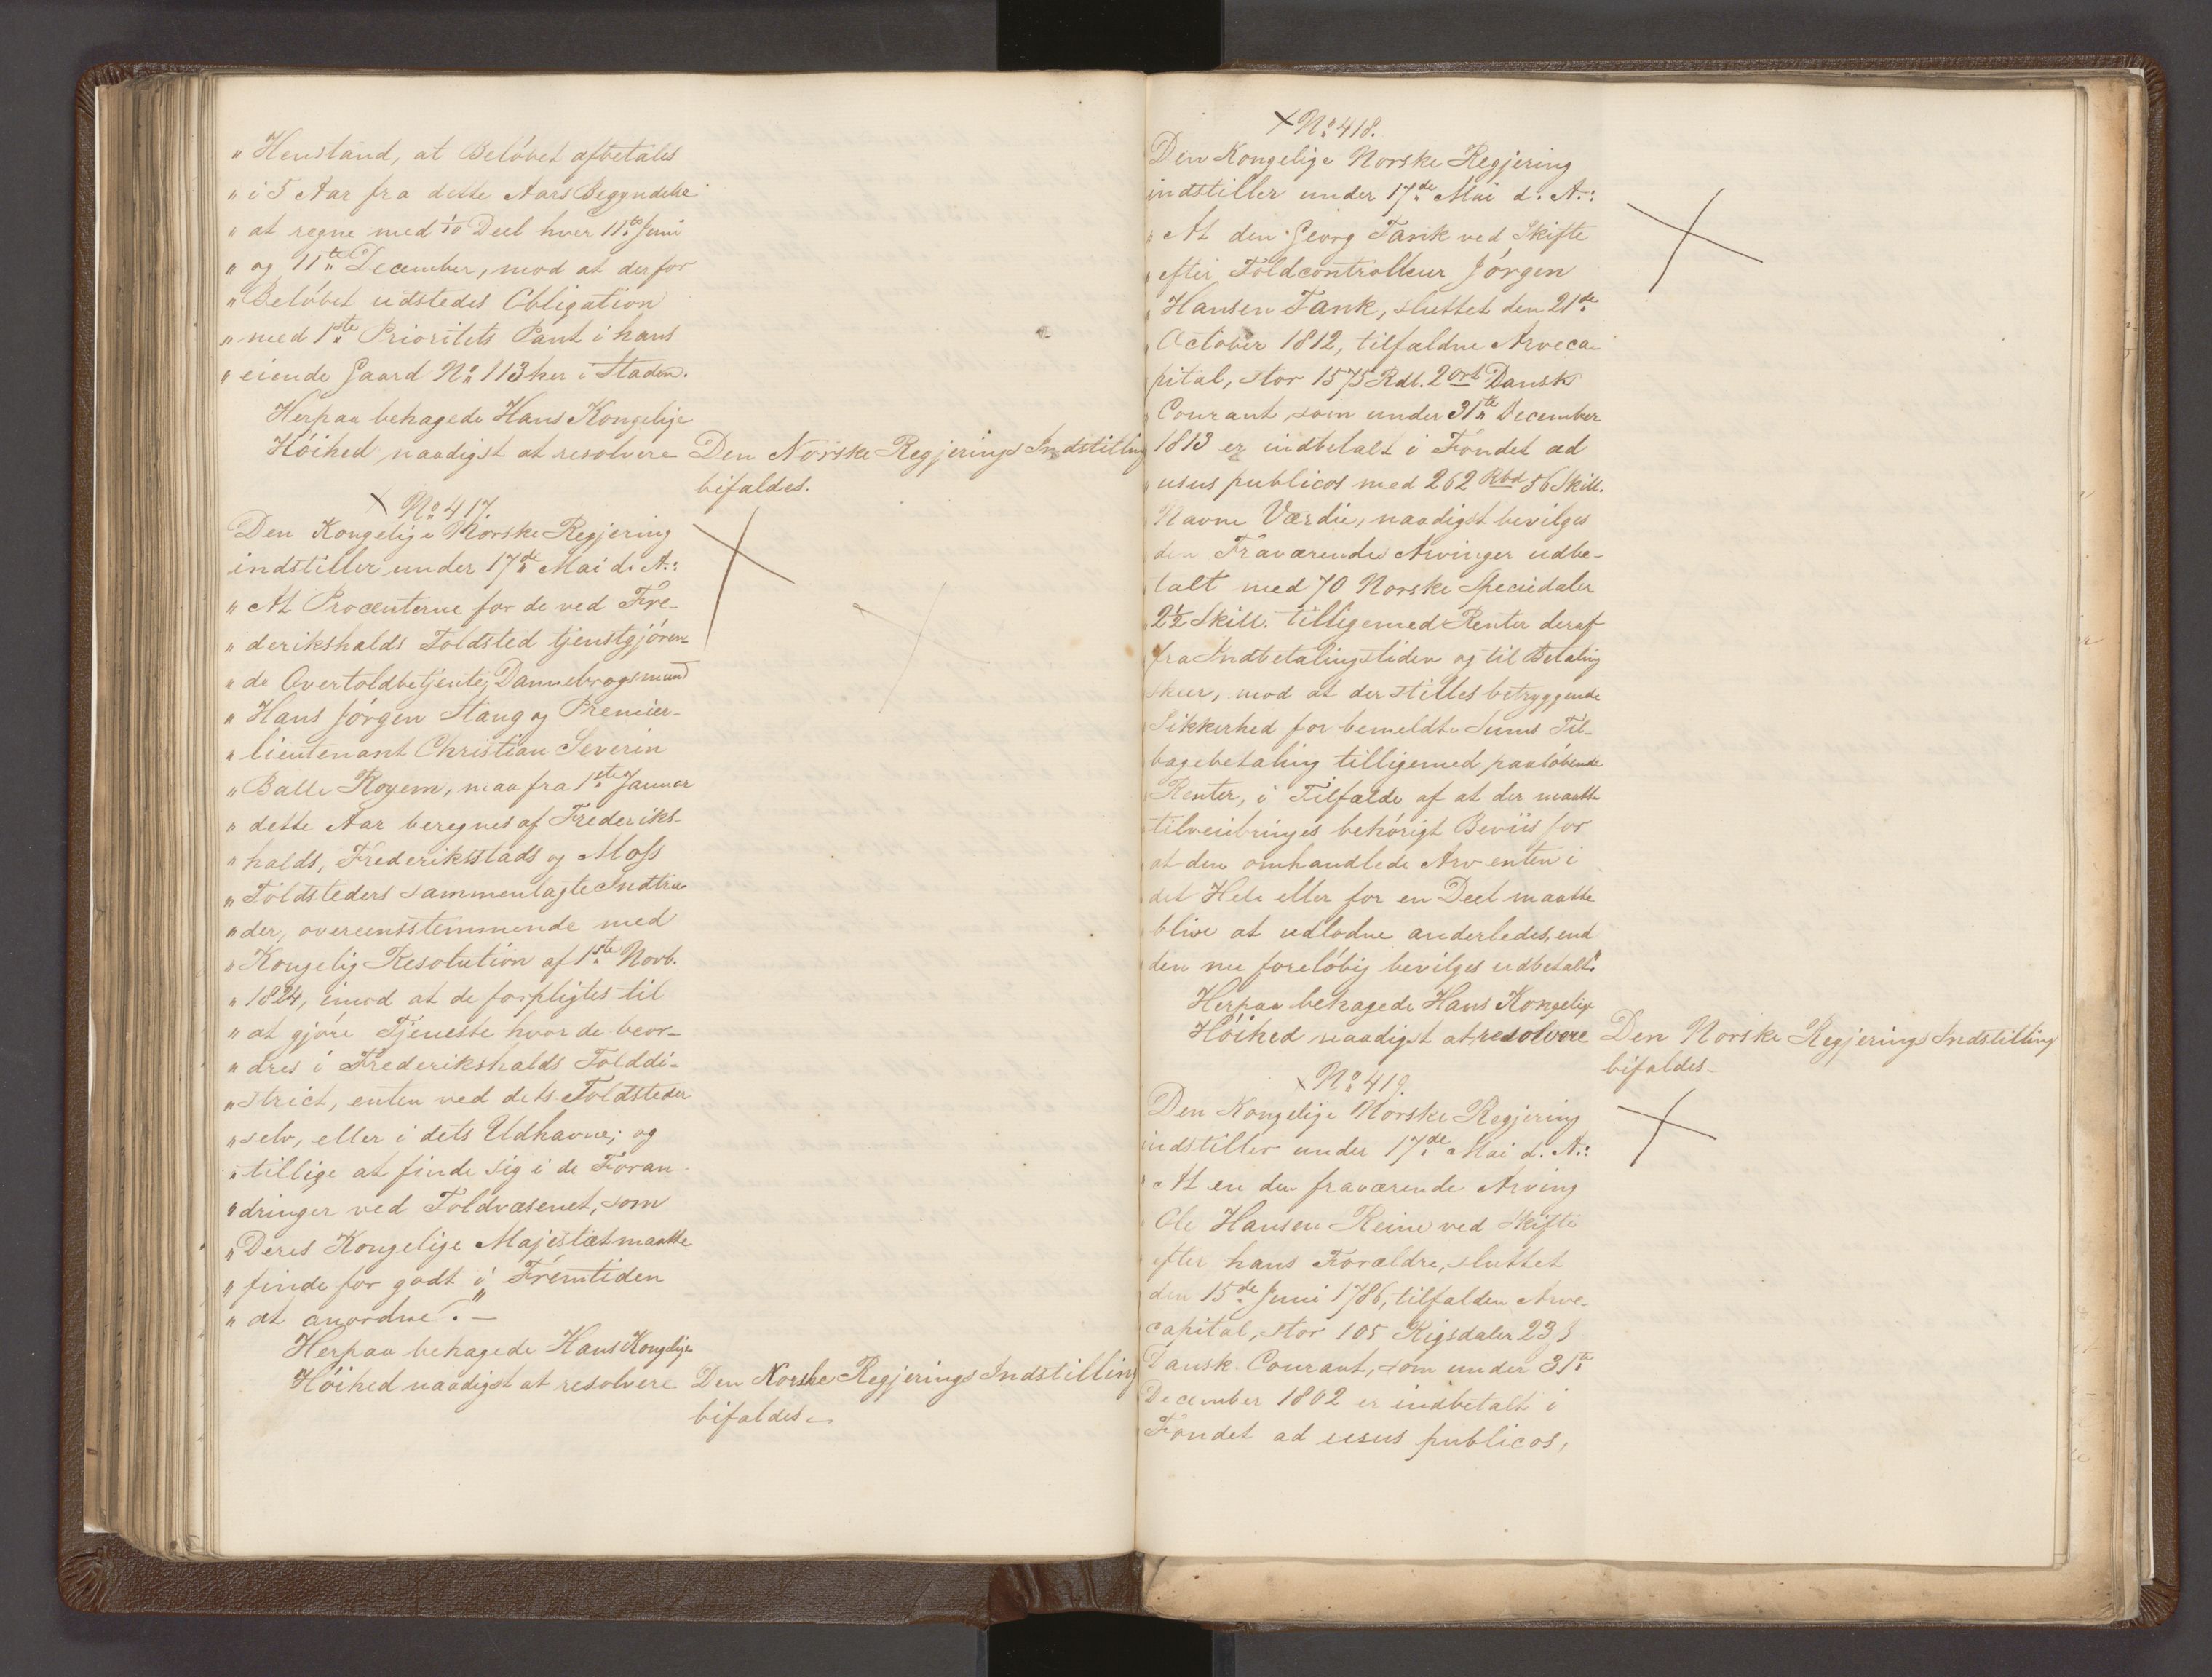 „Henstand, at Beløbet afbetales
„i 5 Aar fra dette Aars Begyndelse
„at regne med 1/10 Deel hver 11te Juni
„og 11te December, mod at derfor
„Beløbet udstedes Obligation
„med 1ste Prioritets Pant i hans
„eiende Gaard No 113 her i Staden.
Herpaa behagede Hans Kongelige
Høihed naadigst at resolvere Den Norske Regjerings Indstilling
bifaldes.
No 417.
Den Kongelige Norske Regjering
indstiller under 17de Mai d. A.:
„At Procenterne for de ved Fre-
„derikshalds Toldsted tjenstgjøren-
„de Overtoldbetjente, Dannebrogsmand
„Hans Jørgen Stang og Premier-
„lieutenant Christian Severin
„Balle Royem, maa fra 1ste Januar
„dette Aar beregnes af Frederiks-
„halds, Frederiksstads og Moss
„Toldsteders sammenlagte Indtræ-
„der, overeensstemmende med
„Kongelig Resolution af 1ste Novb.
„1824, imod at de forpligtes til
„at gjøre Tjeneste hvor de beor-
„dres i Frederikshalds Tolddi-
„strict, enten ved dets Toldsteder
„selv, eller i dets Udhavne; og
„tillige at finde sig i de Foran-
„dringer ved Toldvæsenet, som
„Deres Kongelige Majestæt maatte
„finde for godt i Fremtiden
„at anordne". —
Herpaa behagede Hans Kongelige
Høihed naadigst at resolvere Den Norske Regjerings Indstilling
bifaldes.
No 418.
Den Kongelige Norske Regjering
indstiller under 17de Mai d. A.:
„At den Georg Tank ved Skifte
„efter Toldcontrolleur Jørgen
„Hansen Tank, sluttet den 21de
„October 1812, tilfaldne Arveca-
„pital, stor 1575 Rdl. 2 ort Dansk
„Courant, som under 31te December
„1813 er indbetalt i Fondet ad
„usus publicos med 262 Rbd 56 Skill.
Navne Værdie, naadigst bevilges
den Fraværendes Arvinger udbe-
talt med 70 Norske Speciedaler
2½ Skill. tilligemed Renter deraf
fra Indbetalingstiden og til Betaling
skeer, mod at der stilles betryggende
Sikkerhed for bemeldte Sums Til-
bagebetaling tilligemed paaløbende
Renter, i Tilfælde af at der maatte
tilveiebringes behørigt Beviis for
at den omhandlede Arv enten i
det Hele eller for en Deel maatte
blive at udlodne anderledes, end
den nu foreløbig bevilges udbetalt."
Herpaa behagede Hans Kongelige
Høihed naadigst at resolvere Den Norske Regjerings Indstilling
bifaldes.
No 419.
Den Kongelige Norske Regjering
indstiller under 17de Mai d. A.:
„At en den fraværende Arving
Ole Hansen Reine ved Skifte
efter hans Forældre, sluttet
den 15de Juni 1786, tilfalden Arve-
capital, stor 105 Rigsdaler 23 ß
Dansk Courant, som under 31te
December 1802 er indbetalt i
Fondet ad usus publicos,